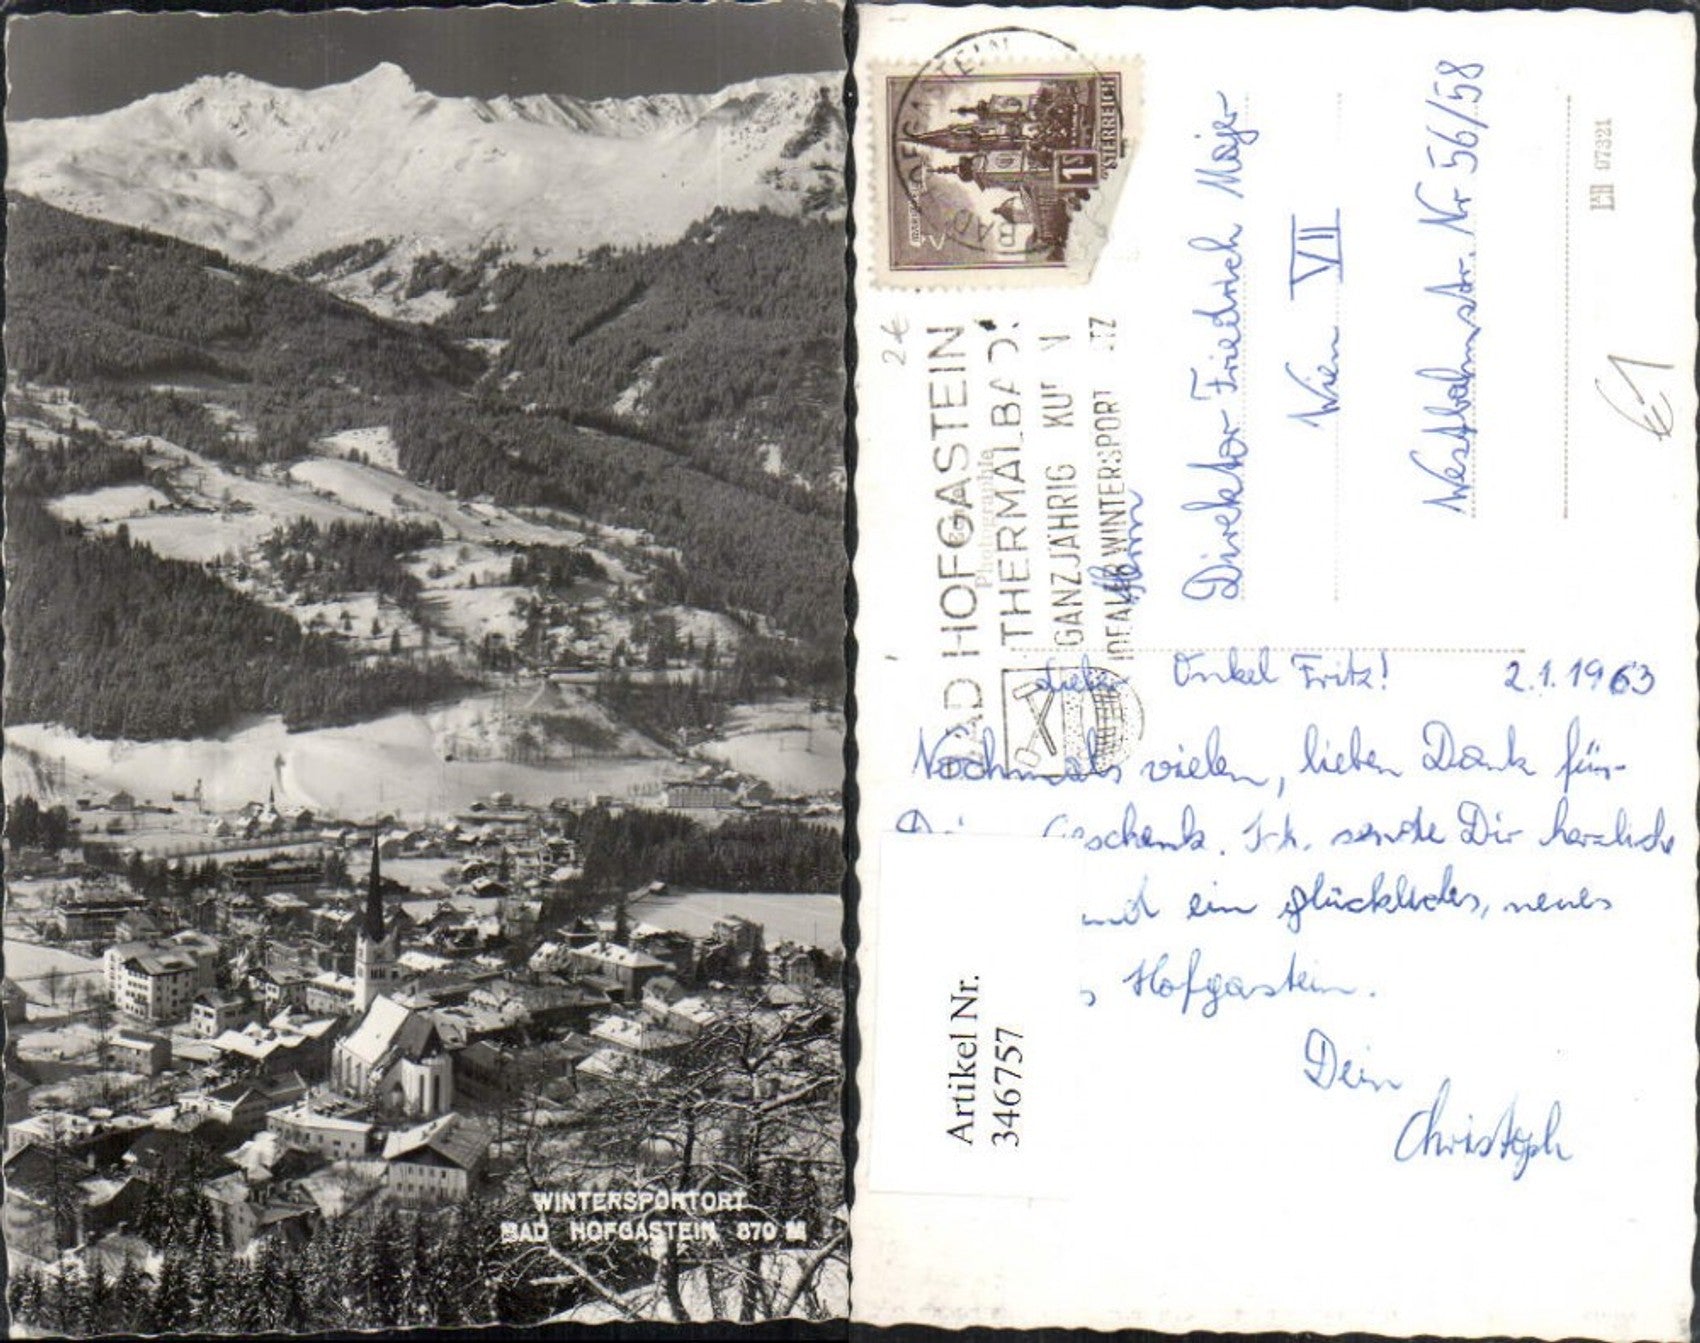 WINTERSPORTORT
BAD HOFGASTEIN 870 M
ÖSTERREICH
1S
BAD HOFGASTEIN
THERMALBAD
GANZJÄHRIG KUR
IDEALER WINTERSPORT
Photographie
2€
Herrn
Direktor Friedrich Majer
Wien VII
Westbahnstr. Nr 56/58
97321
€1
Lieber Onkel Fritz! 2.1.1963
Nochmals vielen, lieben Dank für
Geschenk. Ich sende Dir herzliche
und ein glückliches, neues
s Hofgastein.
Dein
Christoph
Artikel Nr.
346757